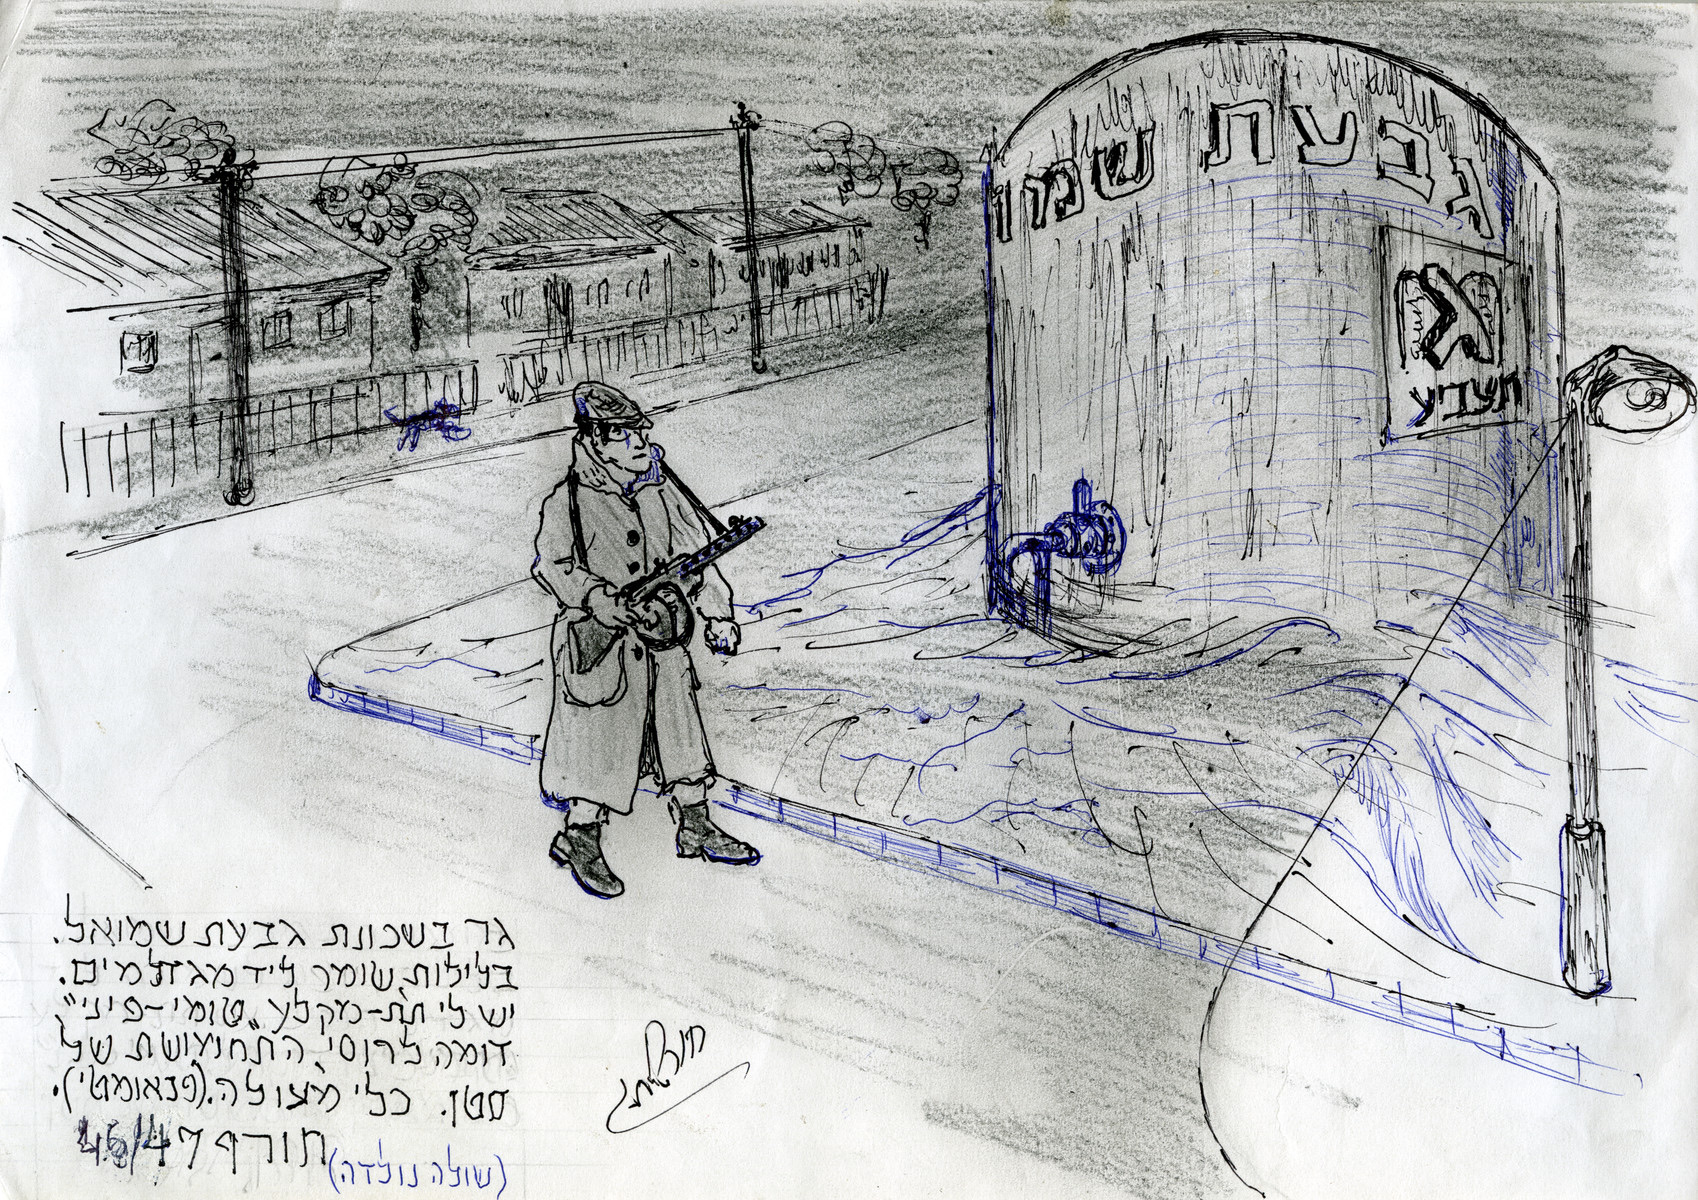 גבעת שמו
א
תצביע
גר בשכונת גבעת שמואל.
בלילות, שומר ליד מגדל מים.
יש לי תת-מקלע "טומי-פיני"
דומה לרוסי, התחמושת של
סטן. כלי מעולה.(פנאומטי).
חורף 46/47
(שולה נולדה)